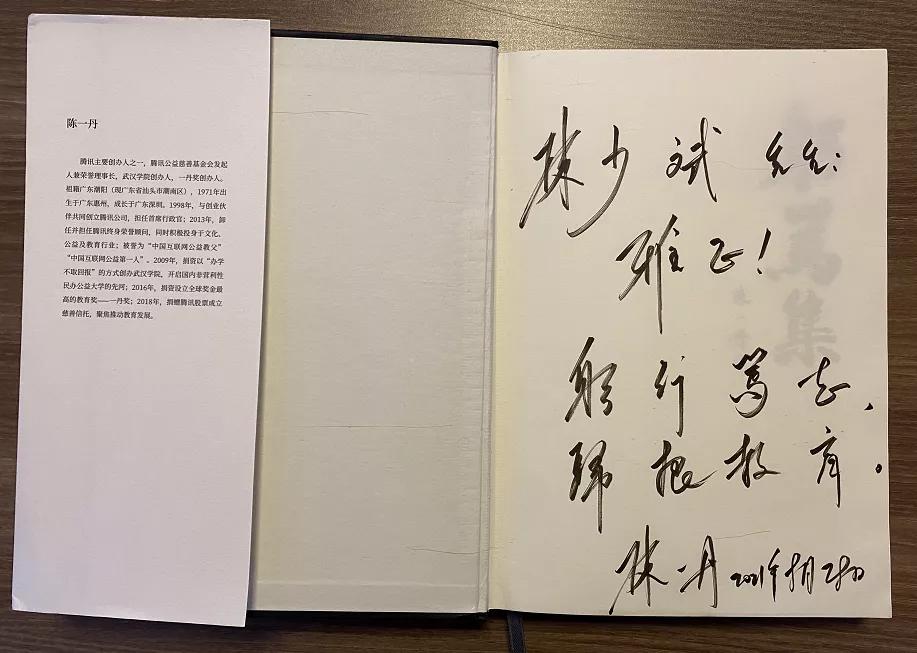 陈一丹
腾讯主要创办人之一，腾讯公益慈善基金会发起
人兼荣誉理事长，武汉学院创办人，一丹奖创办人。
祖籍广东潮阳（现广东省汕头市潮南区），1971年出
生于广东惠州，成长于广东深圳。1998年，与创业伙
伴共同创立腾讯公司，担任首席行政官；2013年，卸
任并担任腾讯终身荣誉顾问，同时积极投身于文化、
公益及教育行业；被誉为“中国互联网公益教父”
“中国互联网公益第一人”。2009年，捐资以“办学
不取回报”的方式创办武汉学院，开启国内非营利性
民办公益大学的先河；2016年，捐资设立全球奖金最
高的教育奖——一丹奖；2018年，捐赠腾讯股票成立
慈善信托，聚焦推动教育发展。
陈少斌 先生：
雅正！
躬行笃志，
归根教育。
陈一丹 2021年